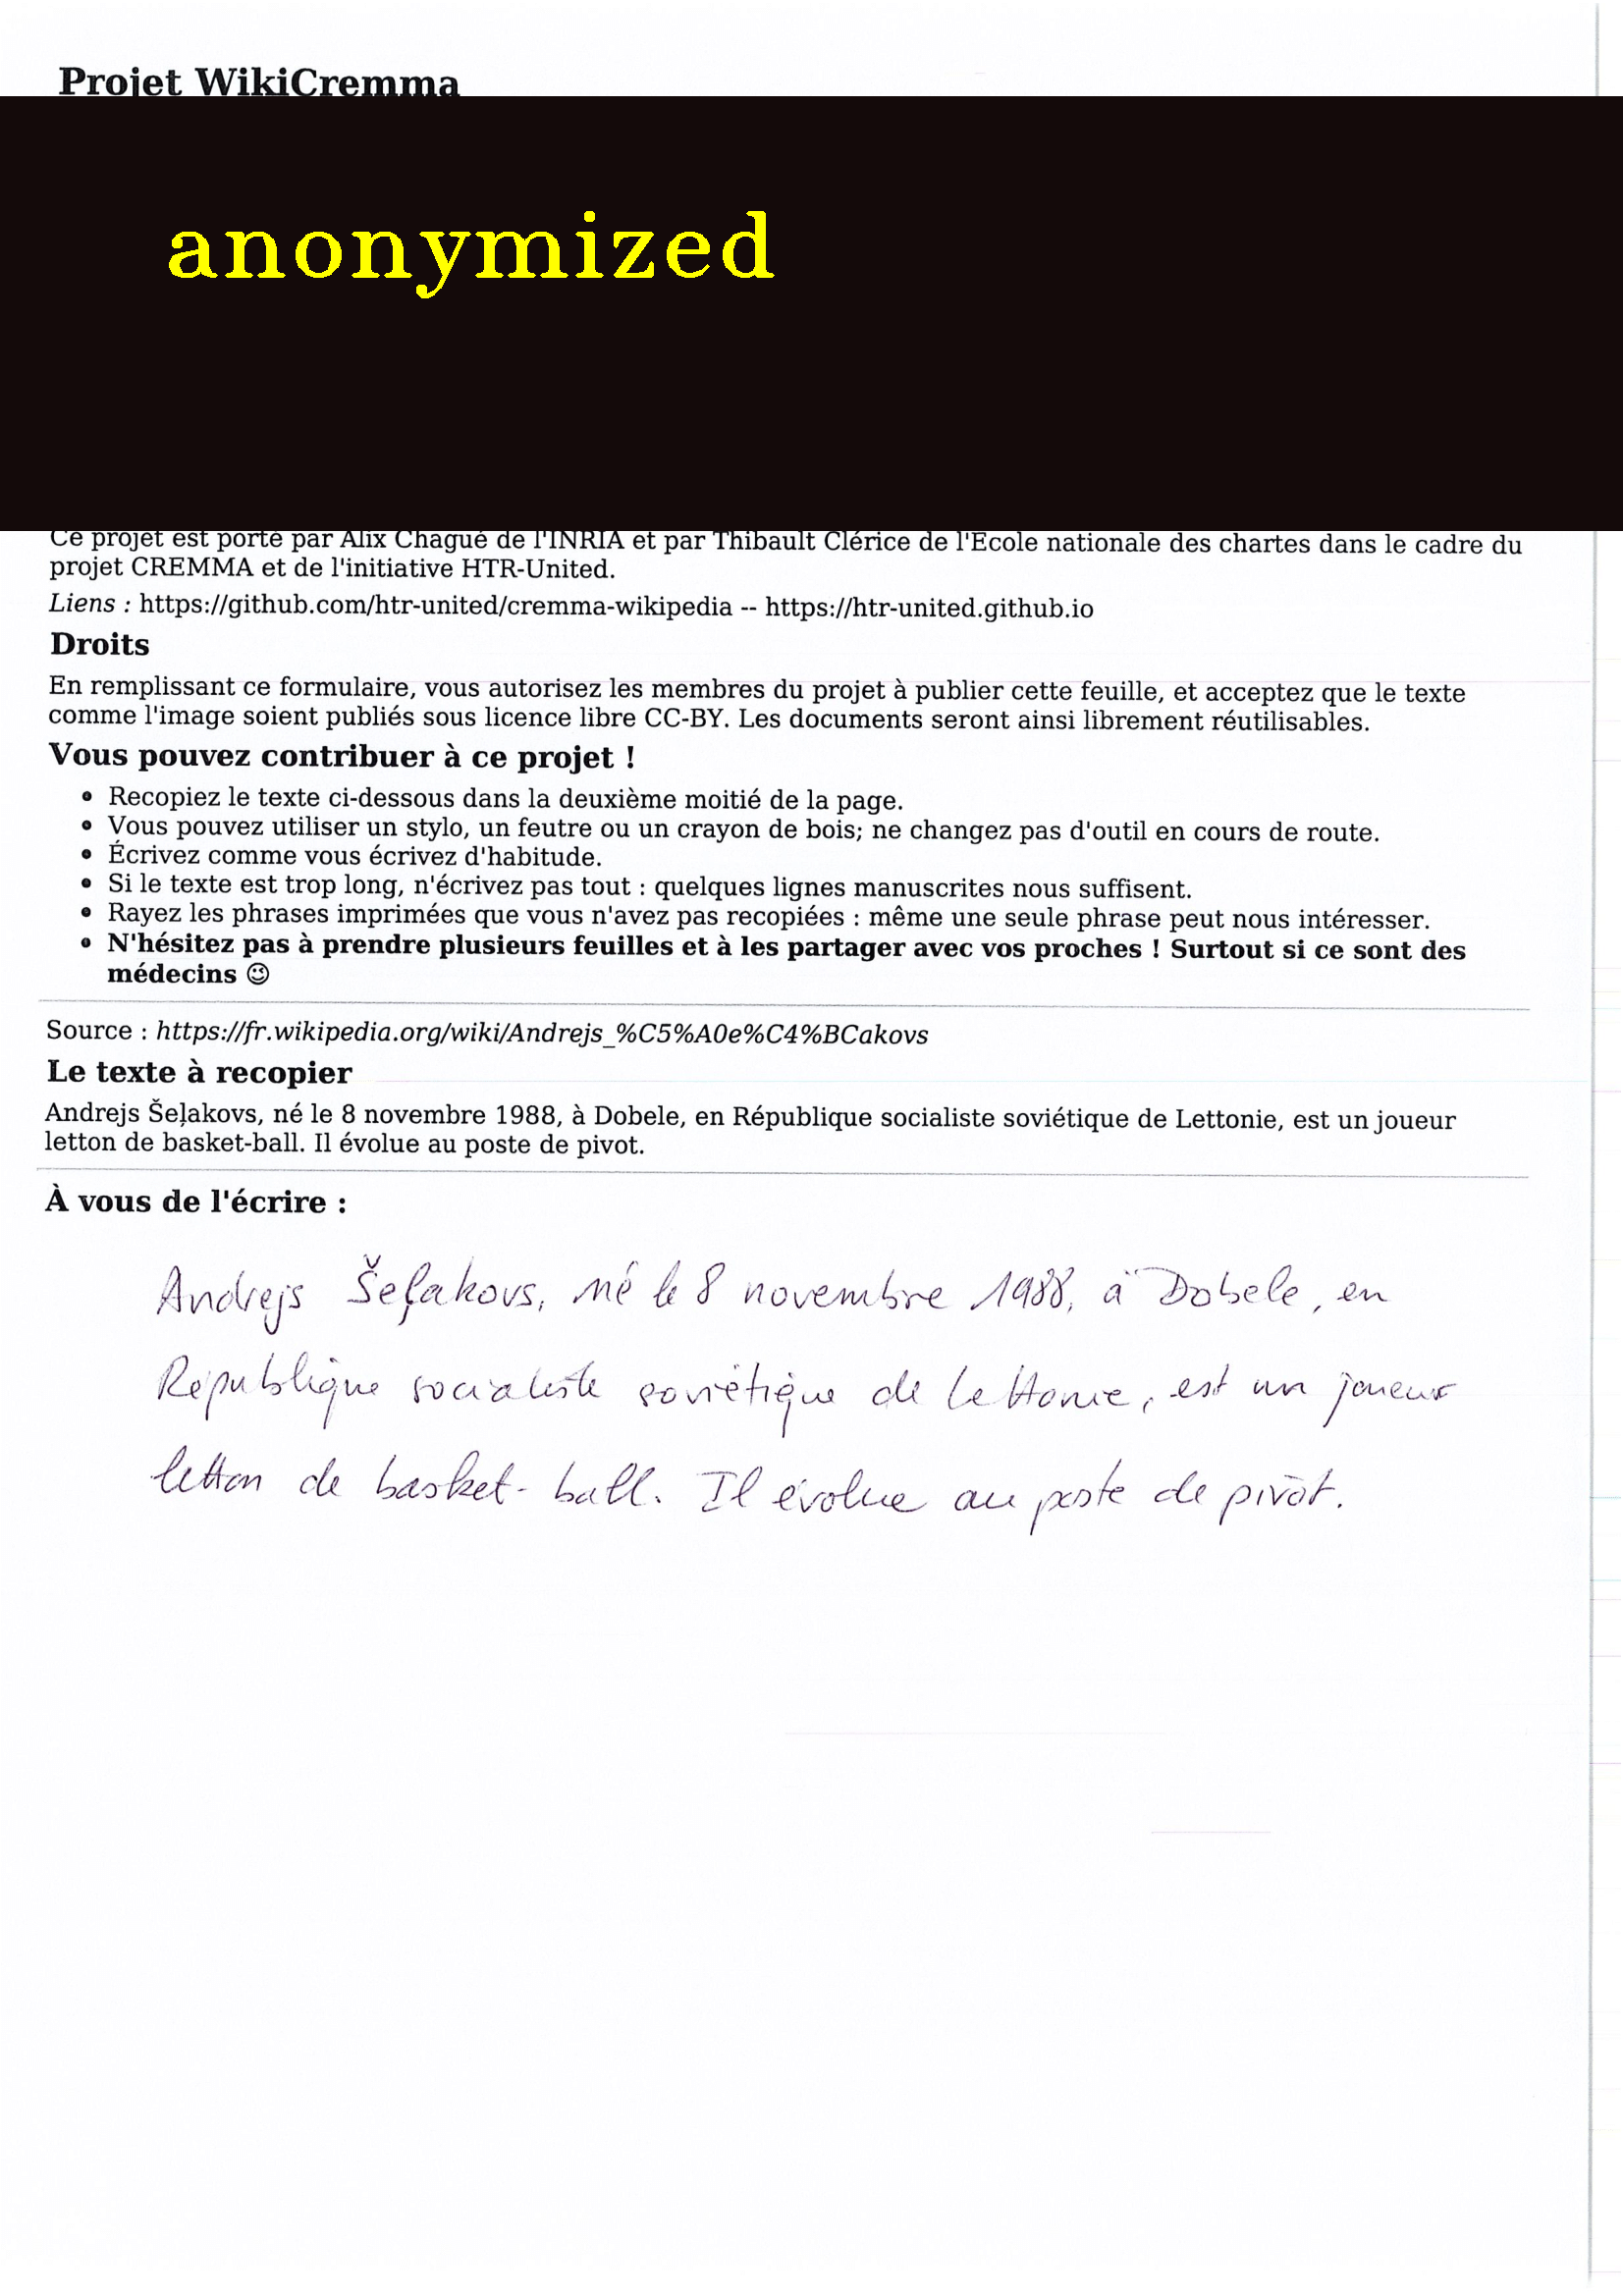 Projet WikiCremma
anonymized
Ce projet est porté par Alix Chagué de l'INRIA et par Thibault Clérice de l'École nationale des chartes dans le cadre du
projet CREMMA et de l'initiative HTR-United.
Liens : https://github.com/htr-united/cremma-wikipedia -- https://htr-united.github.io
Droits
En remplissant ce formulaire, vous autorisez les membres du projet à publier cette feuille, et acceptez que le texte
comme l'image soient publiés sous licence libre CC-BY. Les documents seront ainsi librement réutilisables.
Vous pouvez contribuer à ce projet !
• Recopiez le texte ci-dessous dans la deuxième moitié de la page.
• Vous pouvez utiliser un stylo, un feutre ou un crayon de bois; ne changez pas d'outil en cours de route.
• Écrivez comme vous écrivez d'habitude.
• Si le texte est trop long, n'écrivez pas tout : quelques lignes manuscrites nous suffisent.
• Rayez les phrases imprimées que vous n'avez pas recopiées : même une seule phrase peut nous intéresser.
• N'hésitez pas à prendre plusieurs feuilles et à les partager avec vos proches ! Surtout si ce sont des
médecins 😉
Source : https://fr.wikipedia.org/wiki/Andrejs_%C5%A0e%C4%BCakovs
Le texte à recopier
Andrejs Šeļakovs, né le 8 novembre 1988, à Dobele, en République socialiste soviétique de Lettonie, est un joueur
letton de basket-ball. Il évolue au poste de pivot.
À vous de l'écrire :
Andrejs Šeļakovs, né le 8 novembre 1988, à Dobele, en
République socialiste soviétique de Lettonie, est un joueur
letton de basket-ball. Il évolue au poste de pivot.